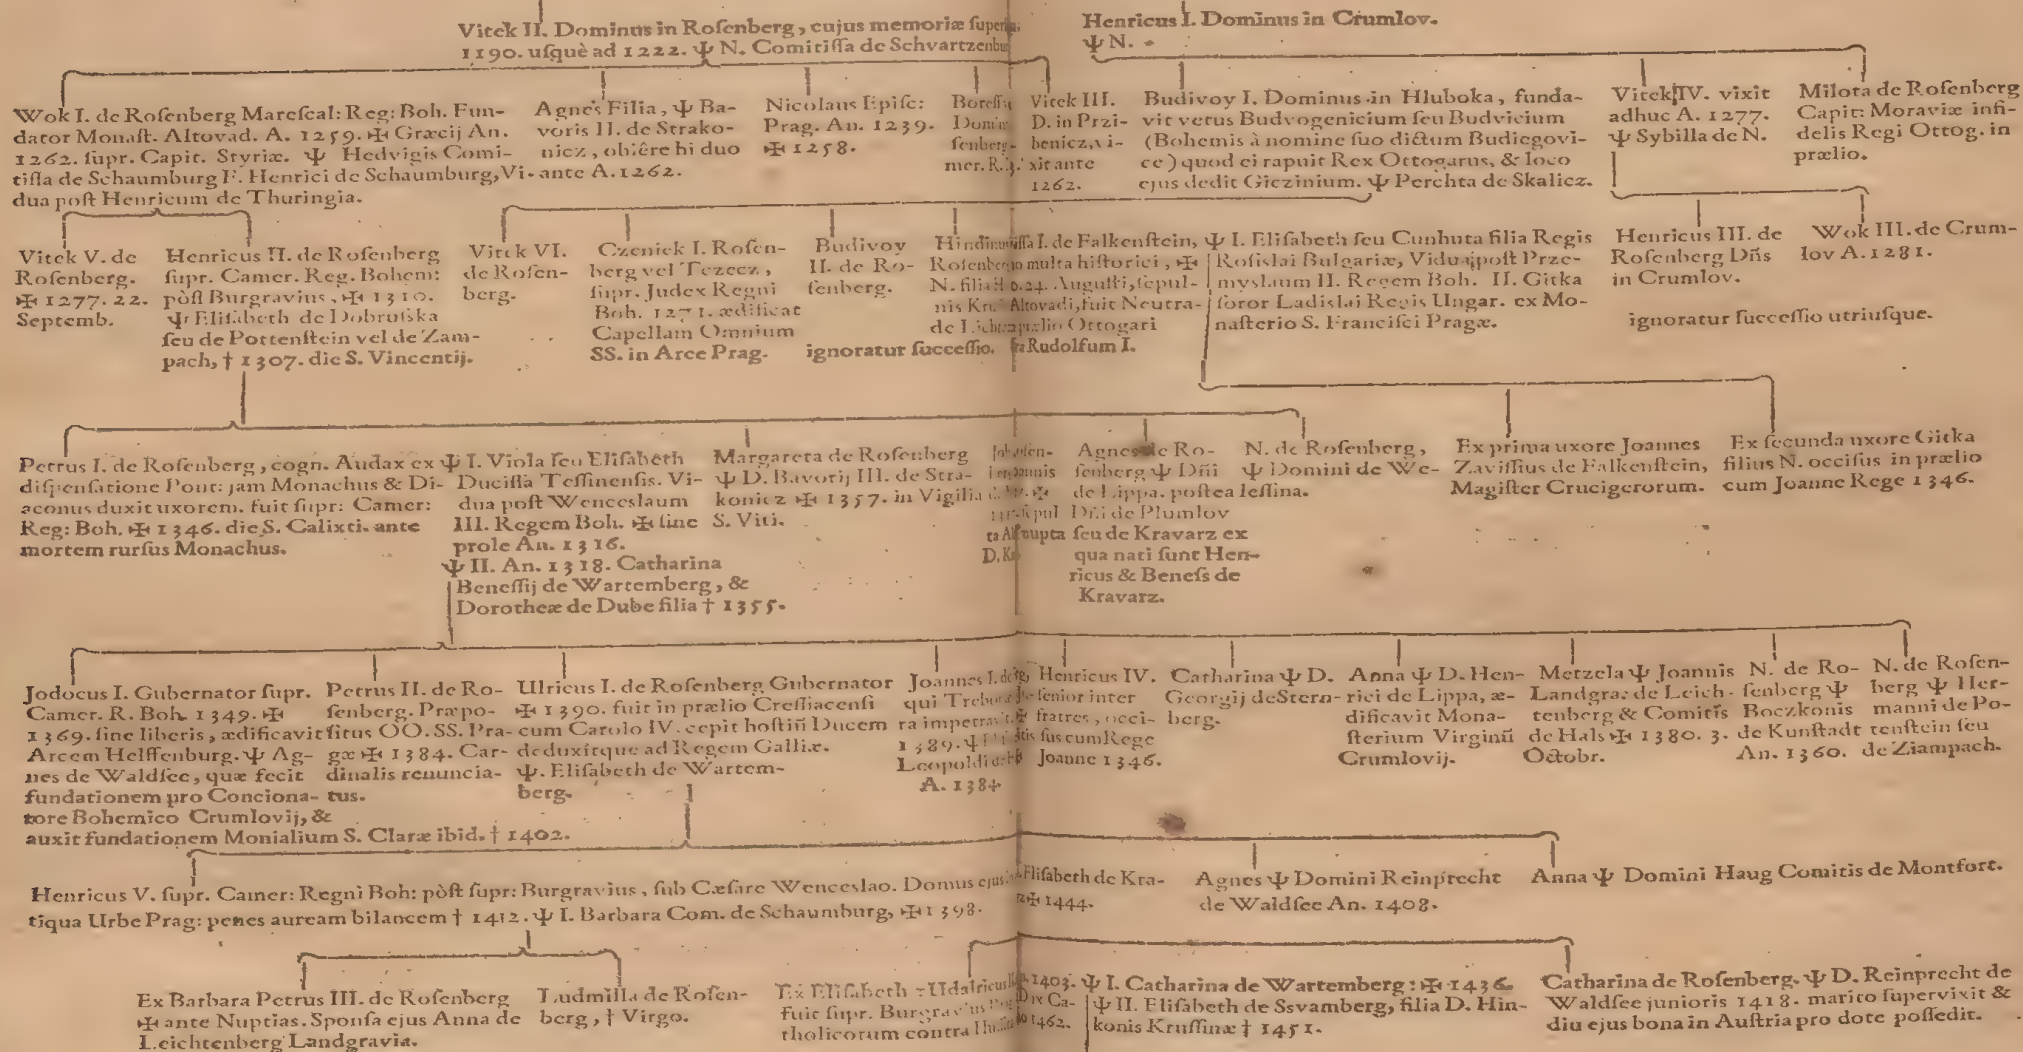 Vitek II. Dominus in Roſenberg, cujus memoriæ
1190. uſquè ad 1222. Ψ N. Comitiſſa de
Henricus I. Dominus in Crumlov.
Ψ N.
Wok I. de Roſenberg Mareſcal: Reg: Boh. Fun-
dator Monaſt. Altovad. A. 1259. ✠ Græcij An.
1262. ſupr. Capit. Styriæ. Ψ Hedvigis Comi-
tiſſa de Schaumburg F. Henrici de Schaumburg, Vi-
dua poſt Henricum de Thuringia.
Agnes Filia, Ψ Ba-
voris II. de Strako-
nicz, obiêre hi duo
ante A. 1262.
Nicolaus Epiſc:
Prag. An. 1239.
✠ 1258.
Vitek III.
D. in Przi-
benicz, vi-
xit ante
1262.
Budivoy I. Dominus in Hluboka, funda-
vit vetus Budvogenicium ſeu Budvicium
(Bohemis à nomine ſuo dictum Budiegovi-
ce) quod ei rapuit Rex Ottogarus, & loco
ejus dedit Giczinium. Ψ Perchta de Skalicz.
Vitek IV. vixit
adhuc A. 1277.
Ψ Sybilla de N.
Milota de Roſenberg
Capit: Moraviæ infi-
delis Regi Ottog. in
prælio.
Vitek V. de
Roſenberg.
✠ 1277. 22.
Septemb.
Henricus II. de Roſenberg
ſupr. Camer. Reg. Bohem:
pòſt Burgravius, ✠ 1310.
Ψ Eliſabeth de Dobruſska
ſeu de Pottenſtein vel de Zam-
pach, † 1307. die S. Vincentij.
Vitek VI.
de Roſen-
berg.
Czeniek I. Roſen-
berg vel Tezecz,
ſupr. Judex Regni
Boh. 1271. ædificat
Capellam Omnium
SS. in Arce Prag.
Budivoy
II. de Ro-
ſenberg.
ignoratur ſucceſſio.
I. de Falkenſtein,
multa hiſtorici, ✠
24. Auguſti, ſepul-
Altovadi, fuit Neutra-
prælio Ottogari
Rudolfum I.
Ψ I. Eliſabeth ſeu Cunhuta filia Regis
Roſislai Bulgariæ, Vidua poſt Prze-
myslaum II. Regem Boh. II. Gitka
ſoror Ladislai Regis Ungar. ex Mo-
naſterio S. Franciſci Pragæ.
Henricus III. de
Roſenberg Dñs
in Crumlov.
Wok III. de Crum-
lov A. 1281.
ignoratur ſucceſſio utriuſque.
Petrus I. de Roſenberg, cogn. Audax ex
diſpenſatione Pont: jam Monachus & Di-
aconus duxit uxorem. fuit ſupr: Camer:
Reg: Boh. ✠ 1346. die S. Calixti. ante
mortem rurſus Monachus.
Ψ I. Viola ſeu Eliſabeth
Duciſſa Teſſinenſis. Vi-
dua poſt Wenceslaum
III. Regem Boh. ✠ ſine
prole An. 1316.
Ψ II. An. 1318. Catharina
Beneſſij de Wartemberg, &
Dorotheæ de Dube filia † 1355.
Margareta de Roſenberg
Ψ D. Bavorij III. de Stra-
konicz ✠ 1357. in Vigilia
S. Viti.
Agnes de Ro-
ſenberg Ψ Dñi
de Lippa. poſtea
Dñi de Plumlov
ſeu de Kravarz ex
qua nati ſunt Hen-
ricus & Beneſs de
Kravarz.
N. de Roſenberg,
Ψ Domini de We-
leſſina.
Ex prima uxore Joannes
Zaviſſius de Falkenſtein,
Magiſter Crucigerorum.
Ex ſecunda uxore Gitka
filius N. occiſus in prælio
cum Joanne Rege 1346.
Jodocus I. Gubernator ſupr.
Camer. R. Boh. 1349. ✠
1369. ſine liberis, ædificavit
Arcem Helffenburg. Ψ Ag-
nes de Waldſee, quæ fecit
fundationem pro Conciona-
tore Bohemico Crumlovij, &
auxit fundationem Monialium S. Claræ ibid. † 1402.
Petrus II. de Ro-
ſenberg. Præpo-
ſitus OO. SS. Pra-
gæ ✠ 1384. Car-
dinalis renuncia-
tus.
Ulricus I. de Roſenberg Gubernator
✠ 1390. fuit in prælio Creſſiacenſi
cum Carolo IV. cepit hoſtiũ Ducem
deduxitque ad Regem Galliæ.
Ψ. Eliſabeth de Wartem-
berg.
Joannes I.
qui
ra impetravit.
1389. Ψ
Leopoldi
A. 1384
Henricus IV.
ſenior inter
fratres, occi-
ſus cum Rege
Joanne 1346.
Catharina Ψ D.
Georgij de Stern-
berg.
Anna Ψ D. Hen-
rici de Lippa, æ-
dificavit Mona-
ſterium Virginũ
Crumlovij.
Metzela Ψ Joannis
Landgra: de Leich-
tenberg & Comitis
de Hals ✠ 1380. 3.
Octobr.
N. de Ro-
ſenberg Ψ
Boczkonis
de Kunſtadt
An. 1360.
N. de Roſen-
berg Ψ Her-
manni de Po-
tenſtein ſeu
de Ziampach.
Henricus V. ſupr. Camer: Regni Boh: pòſt ſupr: Burgravius, ſub Cæſare Wenceslao. Domus ejus
tiqua Urbe Prag: penes auream bilancem † 1412. Ψ I. Barbara Com. de Schaumburg, ✠ 1398.
Eliſabeth de Kra-
✠ 1444.
Agnes Ψ Domini Reinprecht
de Waldſee An. 1408.
Anna Ψ Domini Haug Comitis de Montfort.
Ex Barbara Petrus III. de Roſenberg
✠ ante Nuptias. Sponſa ejus Anna de
Leichtenberg Landgravia.
Ludmilla de Roſen-
berg, † Virgo.
Ex Eliſabeth Udalricus
Fuit ſupr. Burgravius
tholicorum contra
1403.
Dux Ca-
1462.
Ψ I. Catharina de Wartemberg: ✠ 1436.
Ψ II. Eliſabeth de Ssvamberg, filia D. Hin-
konis Kruſſinæ † 1451.
Catharina de Roſenberg. Ψ D. Reinprecht de
Waldſee junioris 1418. marito ſupervixit &
diu ejus bona in Auſtria pro dote poſſedit.